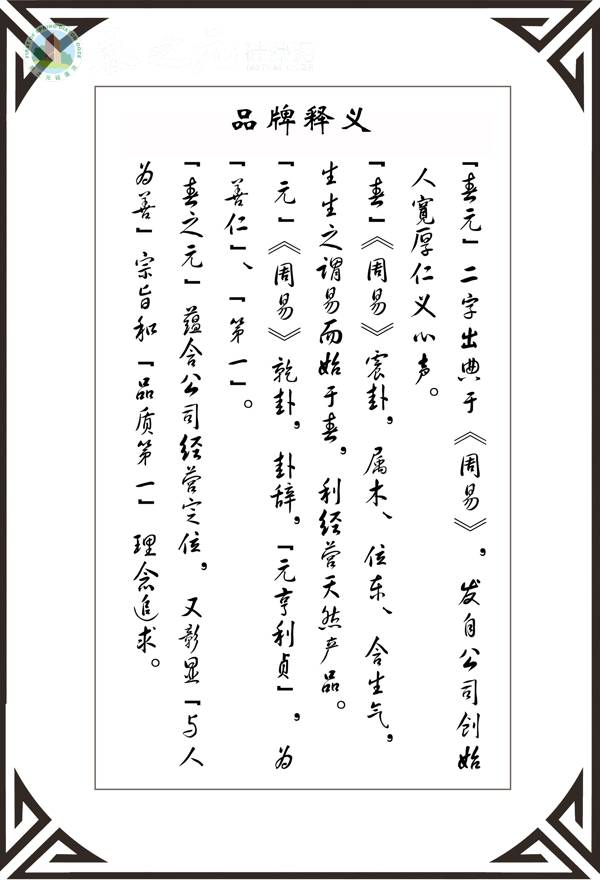 品牌释义
『春元』二字出典于《周易》，发自公司创始
人寬厚仁义心声。
『春』《周易》震卦，属木、位东、含生气，
生生之谓易而始于春，利经营天然产品。
『元』《周易》乾卦，卦辞，『元亨利贞』，为
『善仁』、『第一』。
『春之元』蕴含公司经营定位，又彰显『与人
为善』宗旨和『品质第一』理念追求。